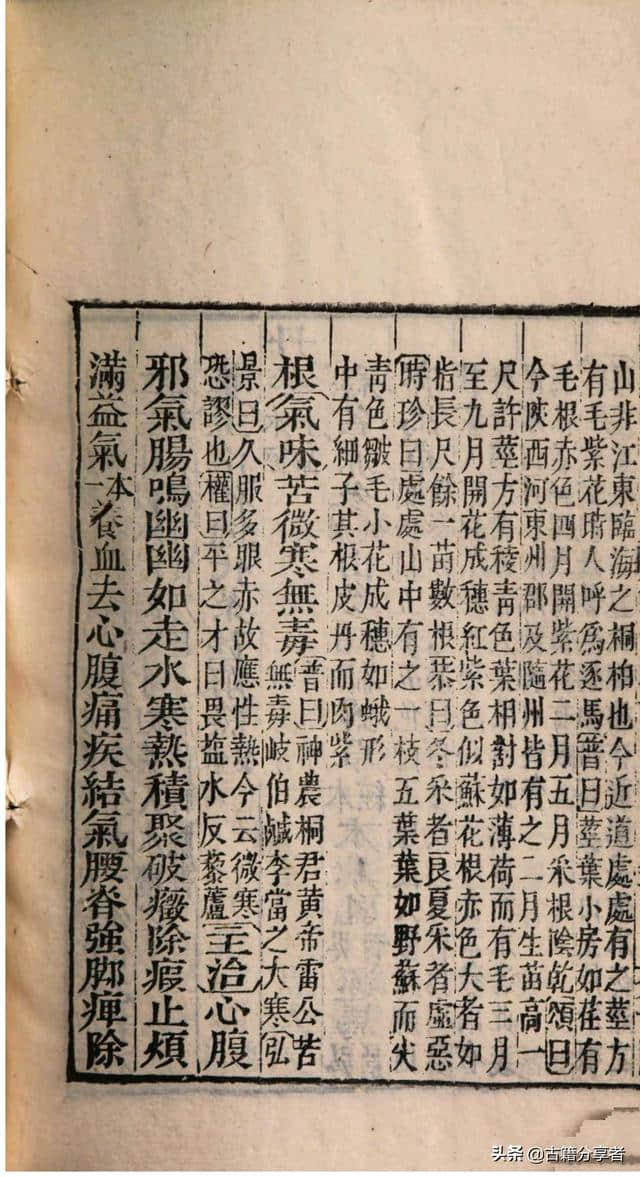 山非江東臨海之桐柏也今近道處處有之莖方
有毛紫花時人呼爲逐馬普曰莖葉小房如荏有
毛根赤色四月開紫花二月五月采根陰乾頌曰
今陝西河東州郡及隨州皆有之二月生苗高一
尺許莖方有稜青色葉相對如薄荷而有毛三月
至九月開花成穗紅紫色似蘇花根赤色大者如
指長尺餘一苗數根恭曰冬采者良夏采者虛惡
時珍曰處處山中有之一枝五葉葉如野蘇而尖
青色皺毛小花成穗如蛾形
中有細子其根皮丹而肉紫
根氣味苦微寒無毒普曰神農桐君黄帝雷公苦
無毒岐伯鹹李當之大寒弘
景曰久服多眼赤故應性熱今云微寒
恐謬也權曰平之才曰畏鹽水反藜蘆主治心腹
邪氣腸鳴幽幽如走水寒熱積聚破癥除瘕止煩
滿益氣本一養血去心腹痛疾結氣腰脊強脚痺除
头条 @古籍分享者